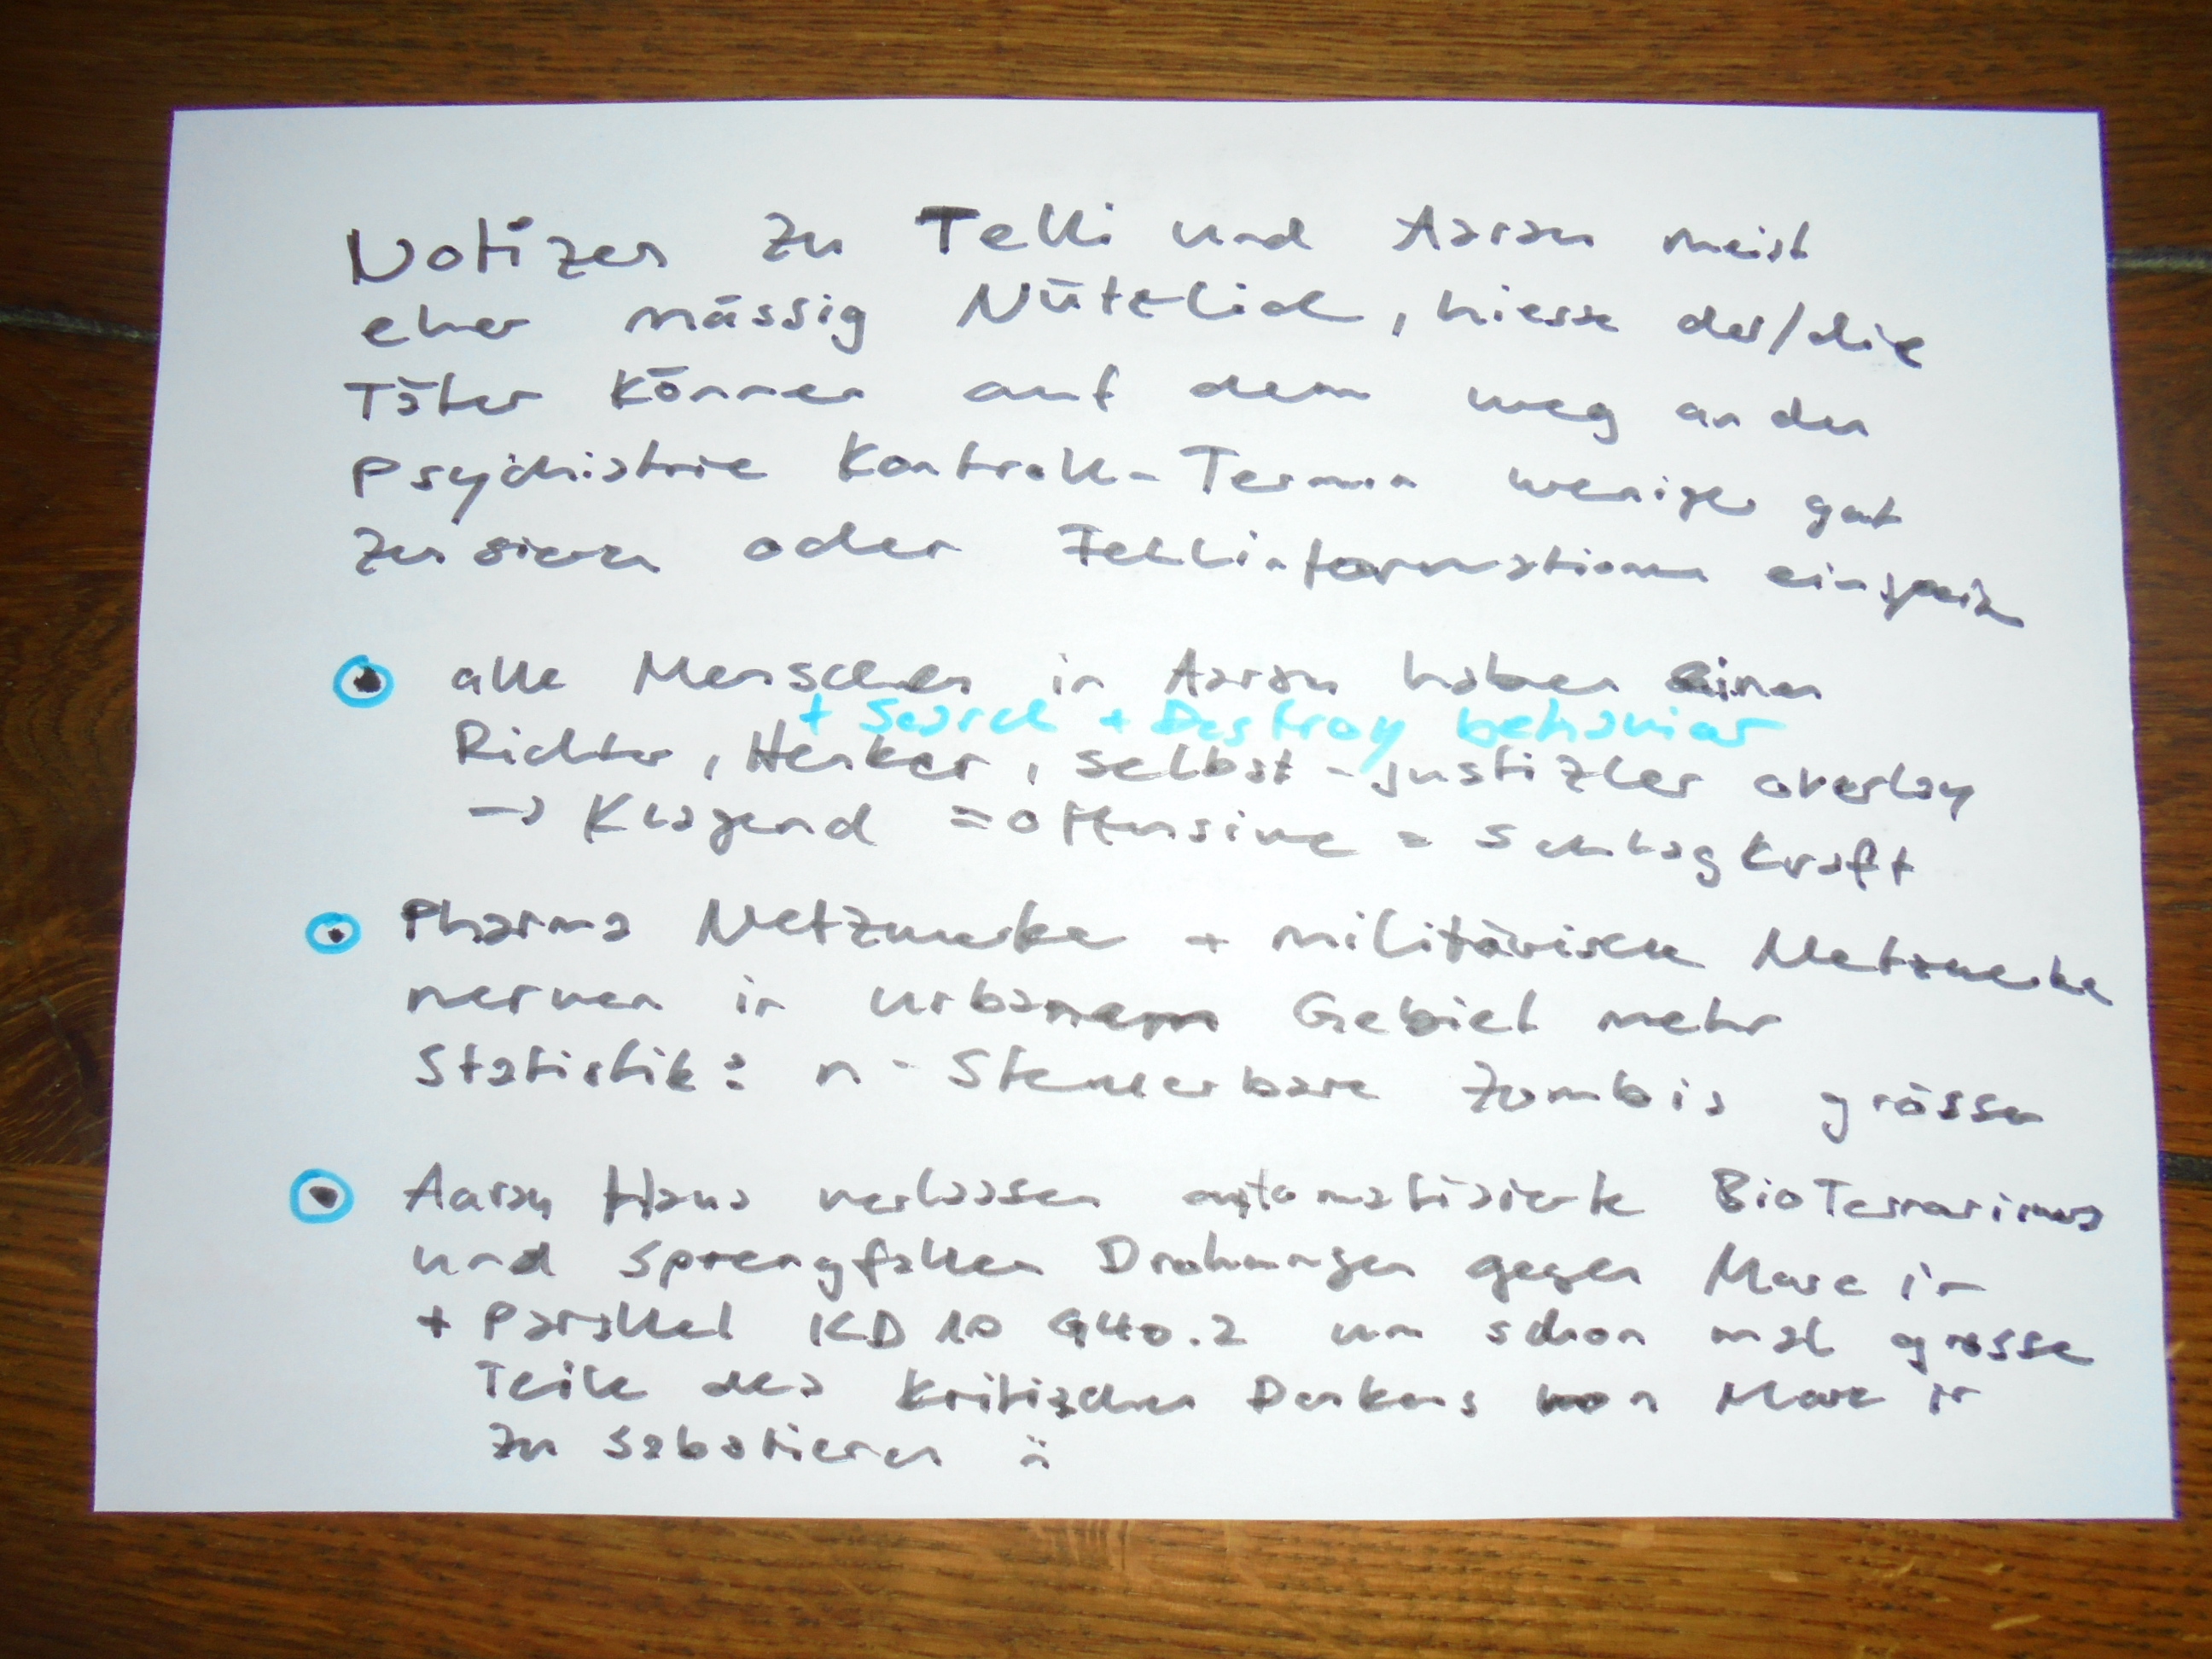 Notizen zu Telli und Aarau meist
eher mässig Nützlich, hiesse der/die
Täter können auf dem weg an den
Psychiatrie Kontroll-Termin weniger gut
zu sicen oder Fehlinformationen
alle Menschen in Aarau haben einen
+ Search + Destroy behavior
Richter, Henker, selbst-justizler overlay
→ Klagend = offensive = schlagkraft
Pharma Netzwerke + militärische Netzwerke
nerven in urbanem Gebiet mehr
Statistik: n- Steuerbare Zombis grösser
Aarau Haus verlassen automatisierte BioTerrarismus
und Sprengfallen Drohungen gegen Marc ir
+ Parallel ICD 10 G40.2 um schon mal grosse
Teile des kritischen Denkens von Marc ir
zu sabotieren